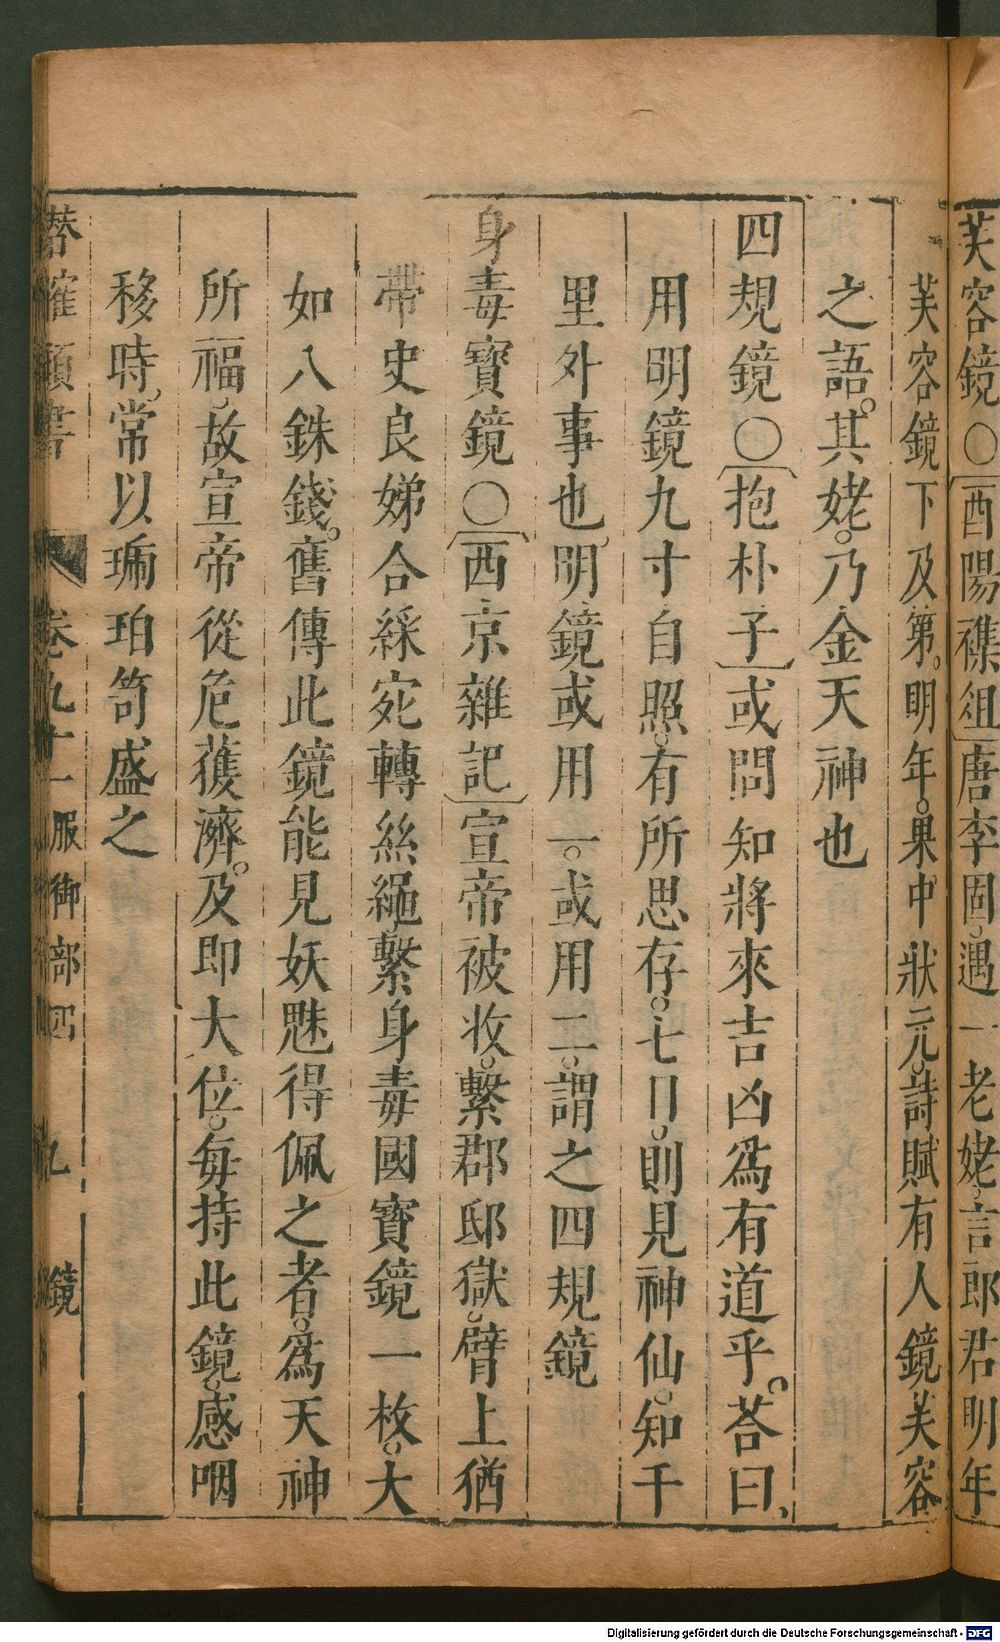 芙容鏡〇〔酉陽襍俎〕唐李固遇一老姥言郎君明年
芙容鏡下及第明年果中狀元詩賦有人鏡芙容
之語其姥乃金天神也
四規鏡〇〔抱朴子〕或問知將來吉凶爲有道乎荅曰
用明鏡九寸自照有所思存七日則見神仙知千
里外事也明鏡或用一或用二謂之四規鏡
身毒寶鏡〇〔西京雜記〕宣帝被收繫郡邸獄臂上猶
帶史良娣合綵宛轉絲繩繫身毒國寶鏡一枚大
如八銖錢舊傳此鏡能見妖魅得佩之者爲天神
所福故宣帝從危獲濟及即大位每持此鏡感咽
移時常以琥珀笥盛之
類書 卷九十一 服御部四 九 鏡
Digitalisierung gefördert durch die Deutsche Forschungsgemeinschaft - DFG